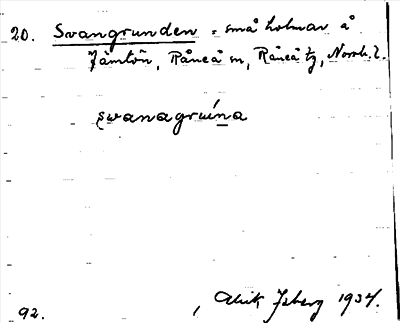 20. Svangrunden = små holmar å
Jämtön, Råneå sn, Råneå tg, Norrb. l.
swanagruína
92.
Isberg 1934.